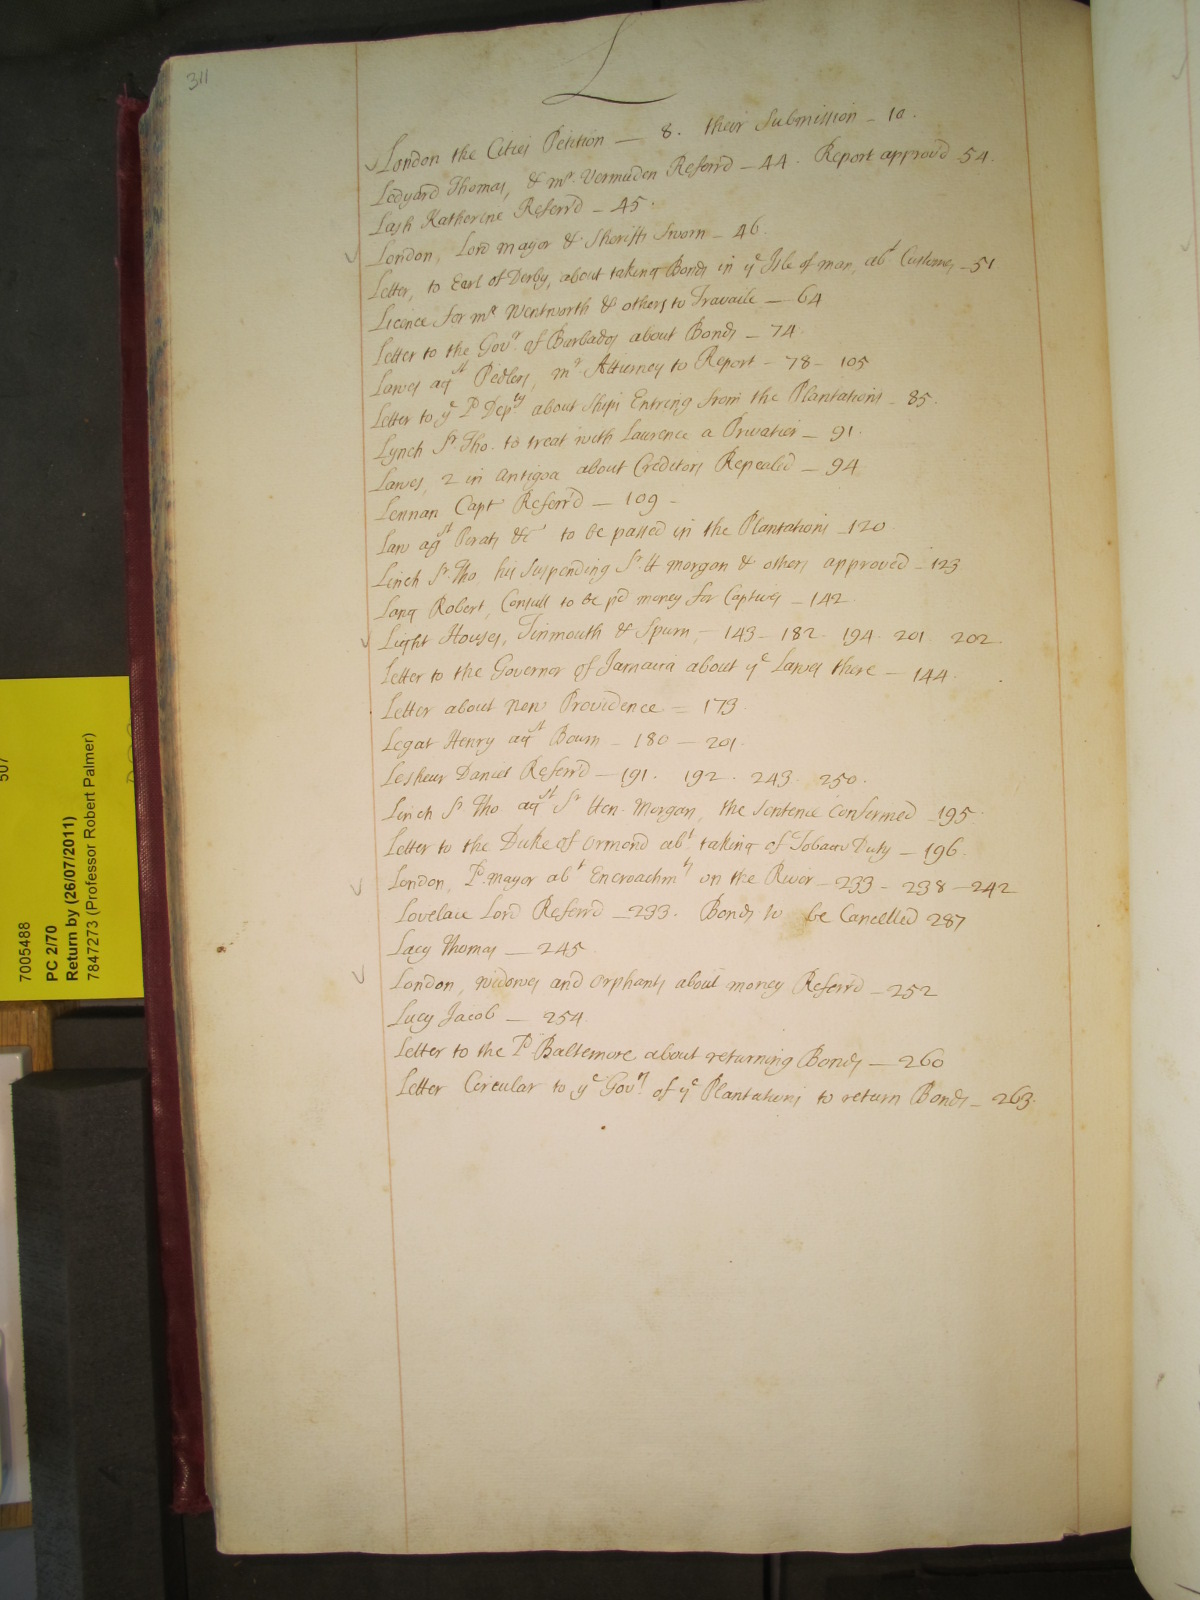 311
L
London the Cities Petition — 8. their Submission - 10.
Ledyard Thomas, & mr. Vermuden Referrd - 44. Report approvd 54.
Lash Katherine Referrd - 45.
London, Lord mayor & Sheriffs Sworn - 46.
Letter, to Earl of Derby, about taking Bonds in ye Isle of man, abt. Customes - 51
Licence for mr Wentworth & others to Travaile — 64
Letter to the Govr. of Barbados about Bonds - 74
Lawes agst Pedlers, mr Atturney to Report - 78 - 105
Letter to ye P Depty about Ships Entreng from the Plantations - 85.
Lynch Sr. Tho. to treat with Laurence a Privatier - 91.
Lawes, 2 in Antigoa about Creditors Repealed - 94
Lennan Capt Referrd — 109 -
Law agst Pirats &c to be passed in the Plantations - 120
Linch Sr. Tho, his suspending Sr. H morgan & others approved - 123
Lang Robert, Consull to be pd money for Captives - 142
Light Houses, Tinmouth & Spurn, - 143 - 182. 194. 201. 202.
Letter to the Governor of Jamaica about ye Lawes there - 144.
Letter about new Providence = 173.
Legat Henry agst Bourn - 180 — 201.
Leskeur Daniel Referrd — 191. 192. 243. 250.
Linch Sr Tho agst Sr Hen. Morgan, the sentence confirmed - 195.
Letter to the Duke of Ormond abt. taking of Tobacco Duty - 196.
London, Ld. mayor abt Encroachmts on the River - 233 - 238 - 242
Lovelace Lord Referrd - 233. Bonds to be Cancelled 287
Lacy Thomas — 245
London, widowes and Orphants about money Referrd - 252
Lucy Jacob — 254
Letter to the Ld Baltemore about returning Bonds — 260
Letter Circular to ye Govrs. of ye Plantations to return Bonds - 263.
507
7005488
PC 2/70
Return by (26/07/2011)
7847273 (Professor Robert Palmer)